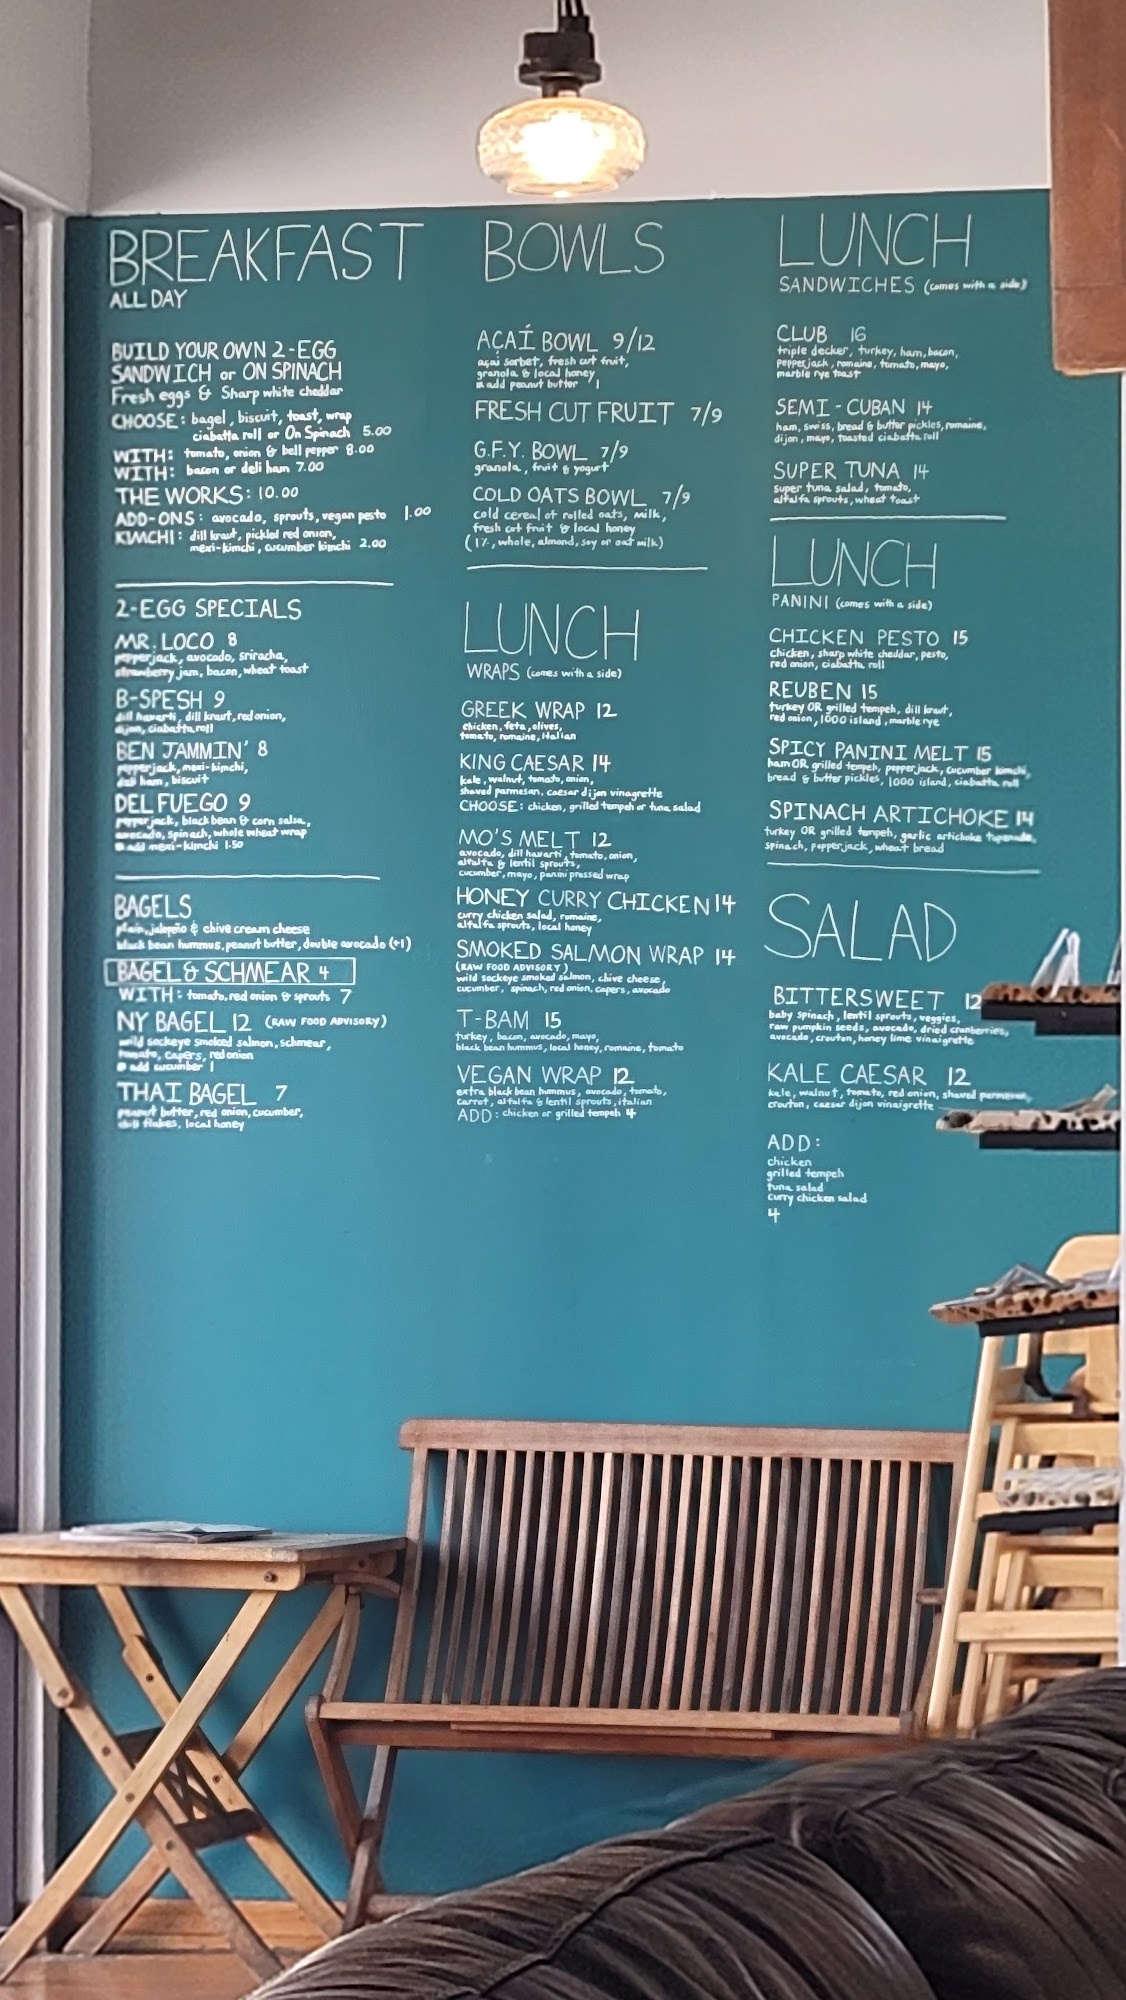 BREAKFAST
ALL DAY
BUILD YOUR OWN 2-EGG
SANDWICH or ON SPINACH
Fresh eggs & Sharp white cheddar
CHOOSE: bagel, biscuit, toast, wrap
ciabatta roll or On Spinach 5.00
WITH: tomato, onion & bell pepper 8.00
WITH: bacon or deli ham 7.00
THE WORKS: 10.00
ADD-ONS: avocado, sprouts, vegan pesto 1.00
KIMCHI: dill kraut, pickled red onion,
mexi-kimchi, cucumber kimchi 2.00
2-EGG SPECIALS
MR. LOCO 8
pepperjack, avocado, sriracha,
strawberry jam, bacon, wheat toast
B-SPESH 9
dill havarti, dill kraut, red onion,
dijon, ciabatta roll
BEN JAMMIN' 8
pepperjack, mexi-kimchi,
deli ham, biscuit
DEL FUEGO 9
pepperjack, black bean & corn salsa,
avocado, spinach, whole wheat wrap
add mexi-kimchi 1.50
BAGELS
plain, jalepeño & chive cream cheese
black bean hummus, peanut butter, double avocado (+1)
BAGEL & SCHMEAR 4
WITH: tomato, red onion & sprouts 7
NY BAGEL 12 (RAW FOOD ADVISORY)
wild sockeye smoked salmon, schmear,
tomato, capers, red onion
add cucumber 1
THAI BAGEL 7
peanut butter, red onion, cucumber,
chili flakes, local honey
BOWLS
AÇAÍ BOWL 9/12
açai sorbet, fresh cut fruit,
granola & local honey
add peanut butter 1
FRESH CUT FRUIT 7/9
G.F.Y. BOWL 7/9
granola, fruit & yogurt
COLD OATS BOWL 7/9
cold cereal of rolled oats, milk,
fresh cut fruit & local honey
(1%, whole, almond, soy or oat milk)
LUNCH
WRAPS (comes with a side)
GREEK WRAP 12
chicken, feta, olives,
tomato, romaine, italian
KING CAESAR 14
kale, walnut, tomato, onion,
shaved parmesan, caesar dijon vinagrette
CHOOSE: chicken, grilled tempeh or tuna salad
MO'S MELT 12
avocado, dill havarti, tomato, onion,
alfalfa & lentil sprouts,
cucumber, mayo, panini pressed wrap
HONEY CURRY CHICKEN 14
curry chicken salad, romaine,
alfalfa sprouts, local honey
SMOKED SALMON WRAP 14
(RAW FOOD ADVISORY)
wild sockeye smoked salmon, chive cheese,
cucumber, spinach, red onion, capers, avocado
T-BAM 15
turkey, bacon, avocado, mayo,
black bean hummus, local honey, romaine, tomato
VEGAN WRAP 12
extra black bean hummus, avocado, tomato,
carrot, alfalfa & lentil sprouts, italian
ADD: chicken or grilled tempeh 4
LUNCH
SANDWICHES (comes with a side)
CLUB 16
triple decker, turkey, ham, bacon,
pepperjack, romaine, tomato, mayo,
marble rye toast
SEMI-CUBAN 14
ham, swiss, bread & butter pickles, romaine,
dijon, mayo, toasted ciabatta roll
SUPER TUNA 14
super tuna salad, tomato,
alfalfa sprouts, wheat toast
LUNCH
PANINI (comes with a side)
CHICKEN PESTO 15
chicken, sharp white cheddar, pesto,
red onion, ciabatta roll
REUBEN 15
turkey OR grilled tempeh, dill kraut,
red onion, 1000 island, marble rye
SPICY PANINI MELT 15
ham OR grilled tempeh, pepperjack, cucumber kimchi,
bread & butter pickles, 1000 island, ciabatta roll
SPINACH ARTICHOKE 14
turkey OR grilled tempeh, garlic artichoke tapenade,
spinach, pepperjack, wheat bread
SALAD
BITTERSWEET 12
baby spinach, lentil sprouts, veggies,
raw pumpkin seeds, avocado, dried cranberries,
avocado, crouton, honey lime vinaigrette
KALE CAESAR 12
kale, walnut, tomato, red onion, shaved parmesan,
crouton, caesar dijon vinaigrette
ADD:
chicken
grilled tempeh
tuna salad
curry chicken salad
4